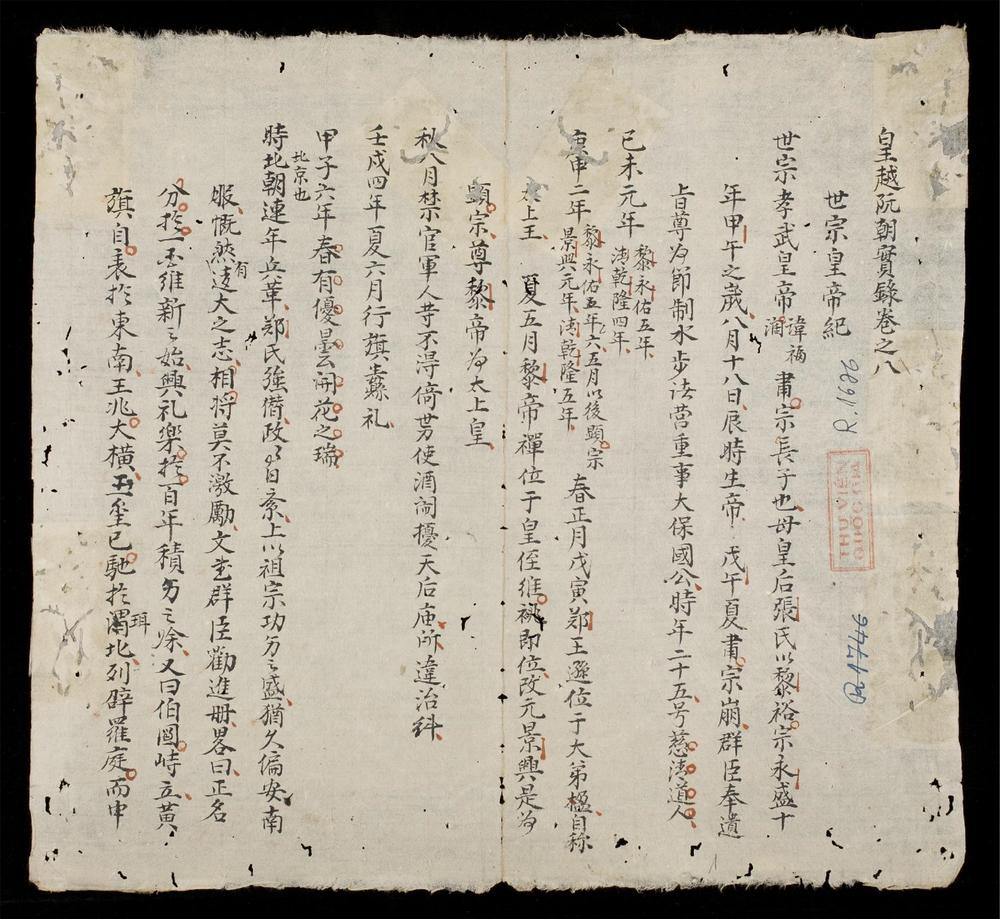 皇越阮朝實錄卷之八
世宗皇帝紀
世宗孝武皇帝
諱福
濶
肅宗長子也母皇后張氏以黎裕宗永盛十
年甲午之歲八月十八日辰時生帝 戊午夏肅宗崩群臣奉遺
旨尊为節制水步诸营重事大保國公時年二十五号慈済道人
已未元年
黎永佑五年
清乾隆四年
庚申二年
黎永佑五年六五月以後顕宗
景興元年清乾隆五年
春正月戊寅郑王遜位于大弟楹自称
太上王 夏五月黎帝禪位于皇侄維祧即位改元景興是为
顕宗尊黎帝为太上皇
秋八月禁官軍人等不得倚势使酒闹擾天后庙所違治科
壬戌四年夏六月行旗纛礼
甲子六年春有優曇開花之瑞
時北朝連年兵革郑氏強僭政日紊上以祖宗功労之盛猶久偏安南
北京也
服慨然逺大之志相将莫不激勵文武群臣勸進册畧曰正名
有
分扵一王維新之始興礼樂扵百年積労之餘又曰伯圖峙立黃
旗自表扵東南王兆大横玉璽已馳扵渭北列辟羅庭而申
珥
THU VIỆN
QUỐC GIA
R.1696
R.1746